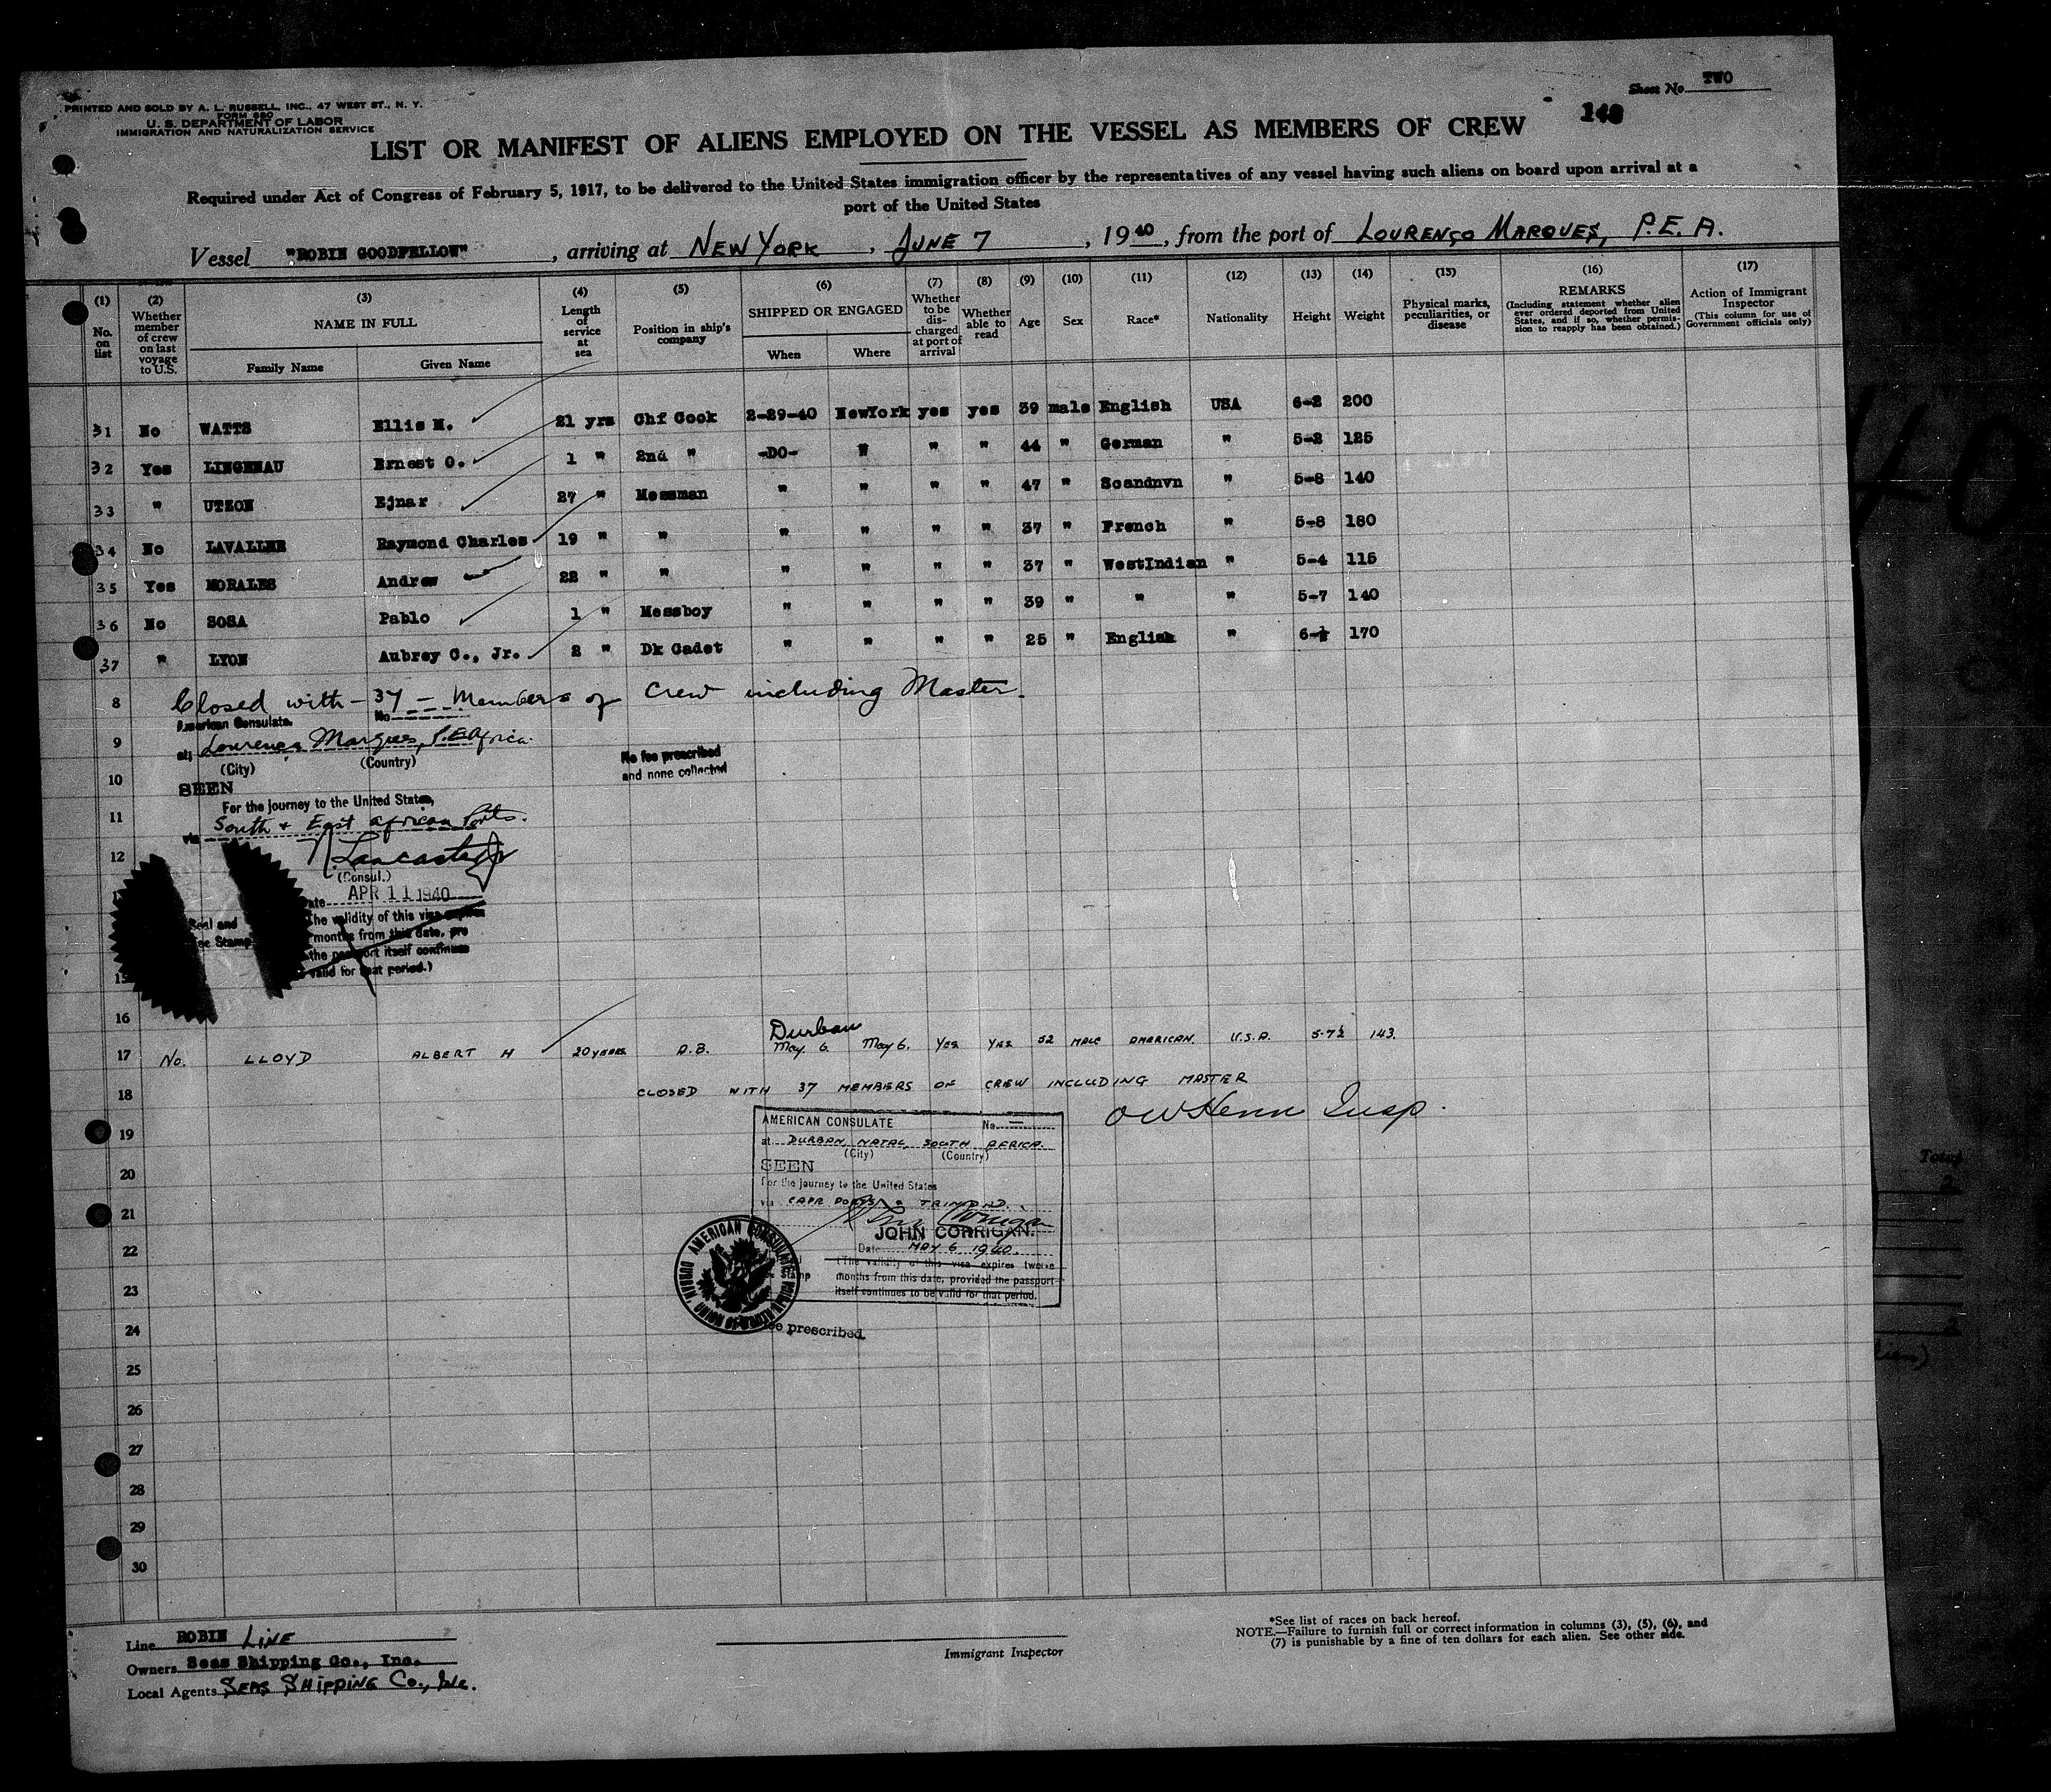 Sheet No. TWO
PRINTED AND SOLD BY A. L. RUSSELL, INC., 47 WEST ST., N. Y.
FORM 680
U. S. DEPARTMENT OF LABOR
IMMIGRATION AND NATURALIZATION SERVICE
148
LIST OR MANIFEST OF ALIENS EMPLOYED ON THE VESSEL AS MEMBERS OF CREW
Required under Act of Congress of February 5, 1917, to be delivered to the United States immigration officer by the representatives of any vessel having such aliens on board upon arrival at a
port of the United States
Vessel "ROBIN GOODFELLOW", arriving at NEW YORK, JUNE 7, 1940, from the port of LOURENÇO MARQUES, P.E.A.
(1) No. on list
(2) Whether member of crew on last voyage to U.S.
(3) NAME IN FULL
Family Name Given Name
(4) Length of service at sea
(5) Position in ship's company
(6) SHIPPED OR ENGAGED
When Where
(7) Whether to be discharged at port of arrival
(8) Whether able to read
(9) Age
(10) Sex
(11) Race*
(12) Nationality
(13) Height
(14) Weight
(15) Physical marks, peculiarities, or disease
(16) REMARKS
(Including statement whether alien ever ordered deported from United States, and if so, whether permission to reapply has been obtained.)
(17) Action of Immigrant Inspector
(This column for use of Government officials only)
31 No WATTS Ellis M. 21 yrs Chf Cook 2-29-40 NewYork yes yes 39 male English USA 6-2 200
32 Yes LINGENAU Ernest O. 1 " 2nd " -DO- " " " 44 " German " 5-2 125
33 " UTZON Ejnar 27 " Messman " " " " 47 " Scandnvn " 5-8 140
34 No LAVALLEE Raymond Charles 19 " " " " " " 37 " French " 5-8 180
35 Yes MORALES Andrew 22 " " " " " " 37 " WestIndian " 5-4 115
36 No SOSA Pablo 1 " Messboy " " " " 39 " " " 5-7 140
37 " LYON Aubrey C., Jr. 2 " Dk Cadet " " " " 25 " English " 6-½ 170
8 Closed with - 37 - Members of Crew including Master.
American Consulate. No
9 at Lourenço Marques, P.E. Africa.
(City) (Country)
No fee prescribed
and none collected
10 SEEN
For the journey to the United States,
11 via South & East African Ports.
12 Lancaster
(Consul.)
Date APR 11 1940
Seal and
Fee Stamp
The validity of this visa expires
months from this date, pro
the passport itself continues
valid for that period.)
15
16 Durban
17 No. LLOYD ALBERT H 20 YEARS A.B. May 6. May 6. YES YES 52 MALE AMERICAN. U.S.A. 5-7½ 143.
18 CLOSED WITH 37 MEMBERS OF CREW INCLUDING MASTER
OW Henn Insp.
AMERICAN CONSULATE No. —
19 at DURBAN, NATAL, SOUTH AFRICA.
(City) (Country)
SEEN
20 For the journey to the United States
via CAPE PORTS & TRINIDAD.
21
JOHN CORRIGAN.
22 Date MAY 6 1940.
(The validity of this visa expires twelve
months from this date, provided the passport
23 itself continues to be valid for that period.
AMERICAN CONSULATE DURBAN, UNION OF SOUTH AFRICA
24 fee prescribed.
25
26
27
28
29
30
Total
2
2
Line ROBIN LINE
Owners Seas Shipping Co., Inc.
Local Agents SEAS SHIPPING Co., Inc.
Immigrant Inspector
*See list of races on back hereof.
NOTE.—Failure to furnish full or correct information in columns (3), (5), (6), and
(7) is punishable by a fine of ten dollars for each alien. See other side.